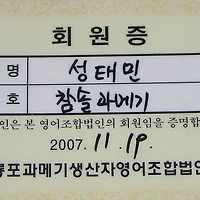 회원증
명 성태민
호 참솔과메기
인은 본 영어조합법인의 회원임을 증명합
2007. 11. 19.
룡포과메기생산자영어조합법인